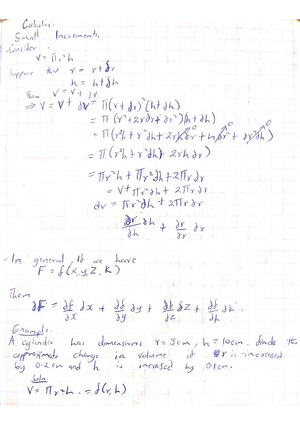 Calculus.
Small Increments.
- Consider
V = πr²h
Suppose that r = r + dr
h = h + dh
Then V = V + dV
⇒ V = V + dV = π(r + dr)²(h + dh)
= π(r² + 2rdr + dr²)(h + dh)
= π(r²h + r²dh + 2rh dr +
= π(r²h + r²dh + 2rh dr)
= πr²h + πr²dh + 2πrdr
= V + πr²dh + 2πrdr
dv = πr²dh + 2πrdr
∂v/∂h dh + ∂v/∂r dr
- In general If we have
F = f(x, y, Z, k)
Then
∂F = ∂f/∂x ∂x + ∂f/∂y ∂y + ∂f/∂z ∂z + ∂f/∂k ∂k.
Example:
A cylinder has dimensions r = 5cm, h = 10cm. finde the
approximate change in volume if r is increased
by 0.2cm and h is increased by 0.1cm.
Soln
V = πr²h. = f(r, h)